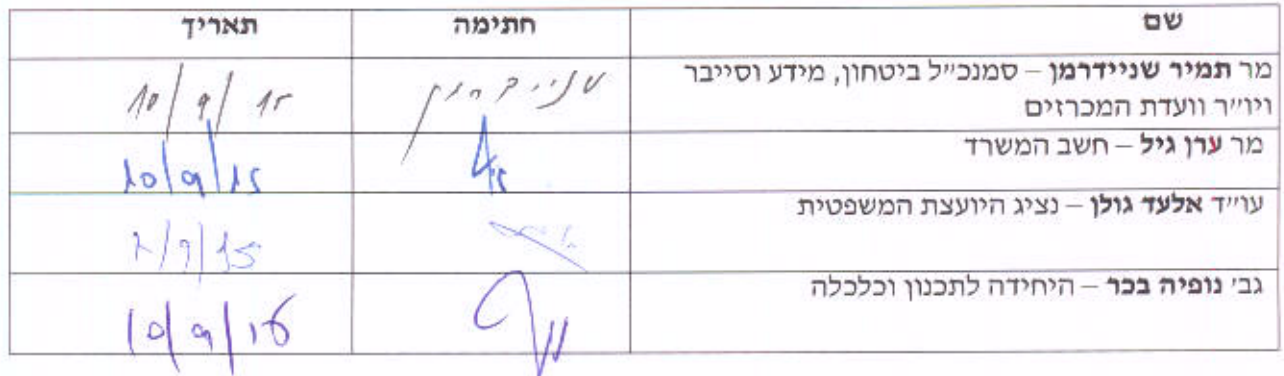 שם חתימה תאריך
מר תמיר שניידרמן – סמנכ״ל ביטחון, מידע וסייבר
ויו״ר וועדת המכרזים
שניידרמן 10/9/15
מר ערן גיל – חשב המשרד
10/9/15
עו״ד אלעד גולן – נציג היועצת המשפטית
גב׳ נופיה בכר – היחידה לתכנון וכלכלה